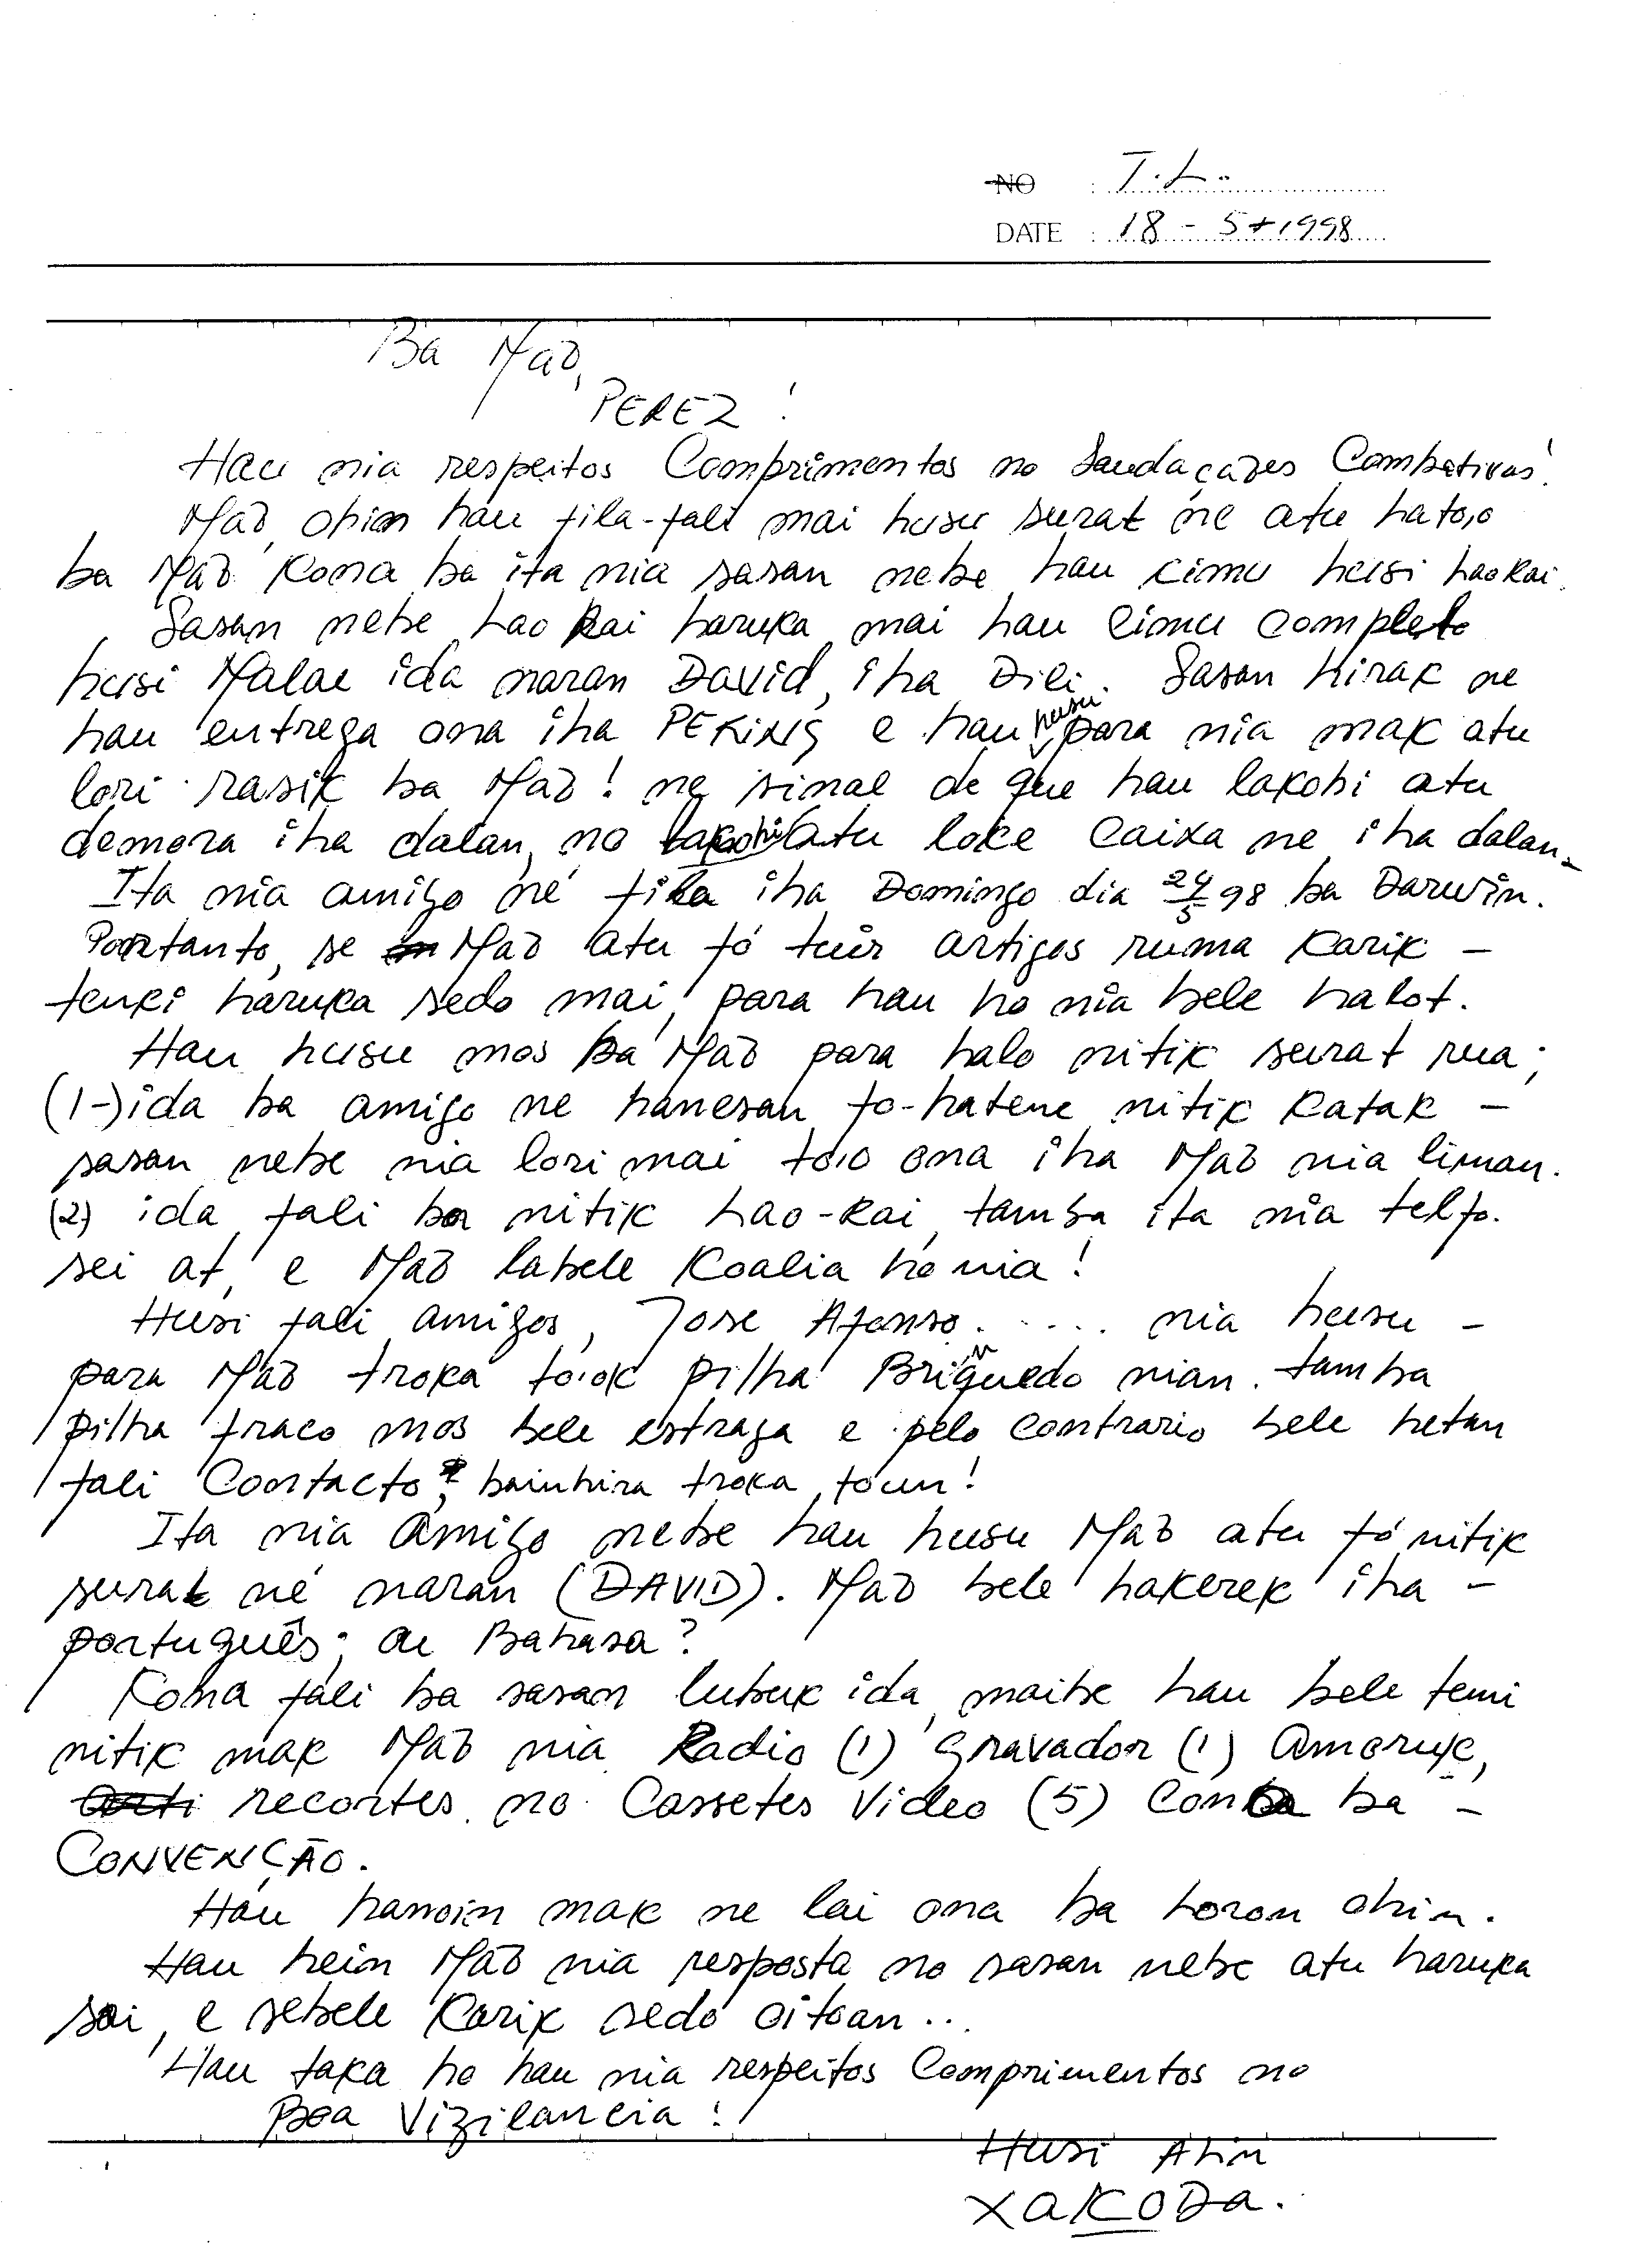 NO : T.L.
DATE : 18 - 5 - 1998
Ba Maõ,
PEREZ !
Hau nia respeitos Comprimentos no Saudaçaões Combativas!
Maõ, ohin hau fila-fali mai husu surat ne atu hato,o
ba Maõ Kona ba ita nia sasan nebe hau simu husi haokai.
Sasan nebe hao kai haruka mai hau simu completo
husi Malae ida naran David, iha Dili. Sasan hirak ne
hau entrega ona iha PEKING e hau husu para nia mak atu
lori rasik ba Maõ! ne sinal de que hau lakohi atu
demora iha dalan, no lakohi atu loke Caixa ne iha dalan.
Ita nia amigo né fila iha Domingo dia 24/5 98 ba Darwin.
Portanto, se Maõ atu fó tuir artigos ruma Karik -
tenki haruka sedo mai, para hau ho nia bele halot.
Hau husu mos ba Maõ para halo nitik surat rua;
(1-) ida ba amigo ne hanesan fo-hatene nitik Katak -
sasan nebe nia lori mai to,o ona iha Maõ nia liman.
(2) ida fali ba nitik hao-kai, tamba ita nia telfo.
sei at, e Maõ labele Koalia ho nia!
Husi fali amigos, Jose Afonso..... nia husu -
para Maõ troka to,ok pilha Brinquedo nian. tamba
pilha fraco mos bele estraga e pelo contrario bele hetan
fali Contacto, bainhira troka foun!
Ita nia Amigo nebe hau husu Maõ atu fó nitik
surat né naran (DAVID). Maõ bele hakerek iha -
português; ou Bahasa?
Kona fali ba sasan lubuk ida, maibe hau bele temi
nitik mak Maõ nia Radio (1) Gravador (1) Amoruk,
recortes no Cassetes Video (5) Cona ba -
CONVENÇÃO.
Hau hanoin mak ne lai ona ba loron ohin.
Hau hein Maõ nia resposta no sasan nebe atu haruka
sai, e sebele Karik sedo oitoan...
Hau taka ho hau nia respeitos Comprimentos no
Boa Vizilancia!
Husi Alin
XAKODA.